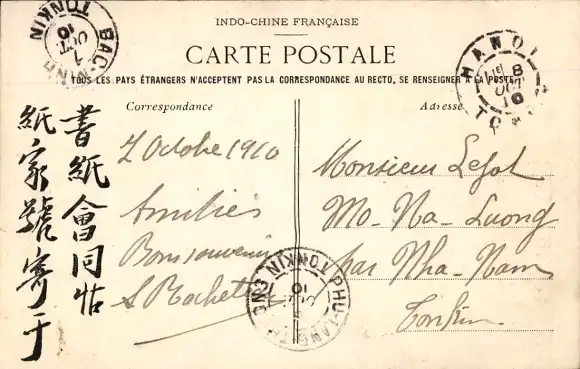 INDO-CHINE FRANÇAISE
CARTE POSTALE
TOUS LES PAYS ÉTRANGERS N'ACCEPTENT PAS LA CORRESPONDANCE AU RECTO. SE RENSEIGNER A LA POSTE
Correspondance
Adresse
BAC-NINH
TONKIN
7
OCT
10
HANOI
8
OCT
10
書紙會同帖
紙家號寄于
7 Octobre 1910
Amitiés
Bons souvenirs
Monsieur
Mo-Na-Luong
par Nha-Nam
Tonkin
PHU-LANG-THUONG
TONKIN
10